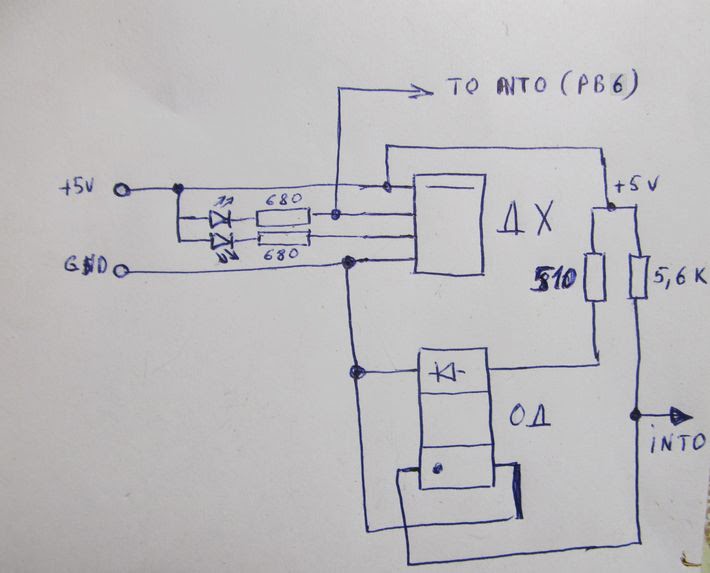 TO INTO (PB6)
+5V
680
+5V
ДХ
680
GND
510
5,6 K
ОД
iNTO